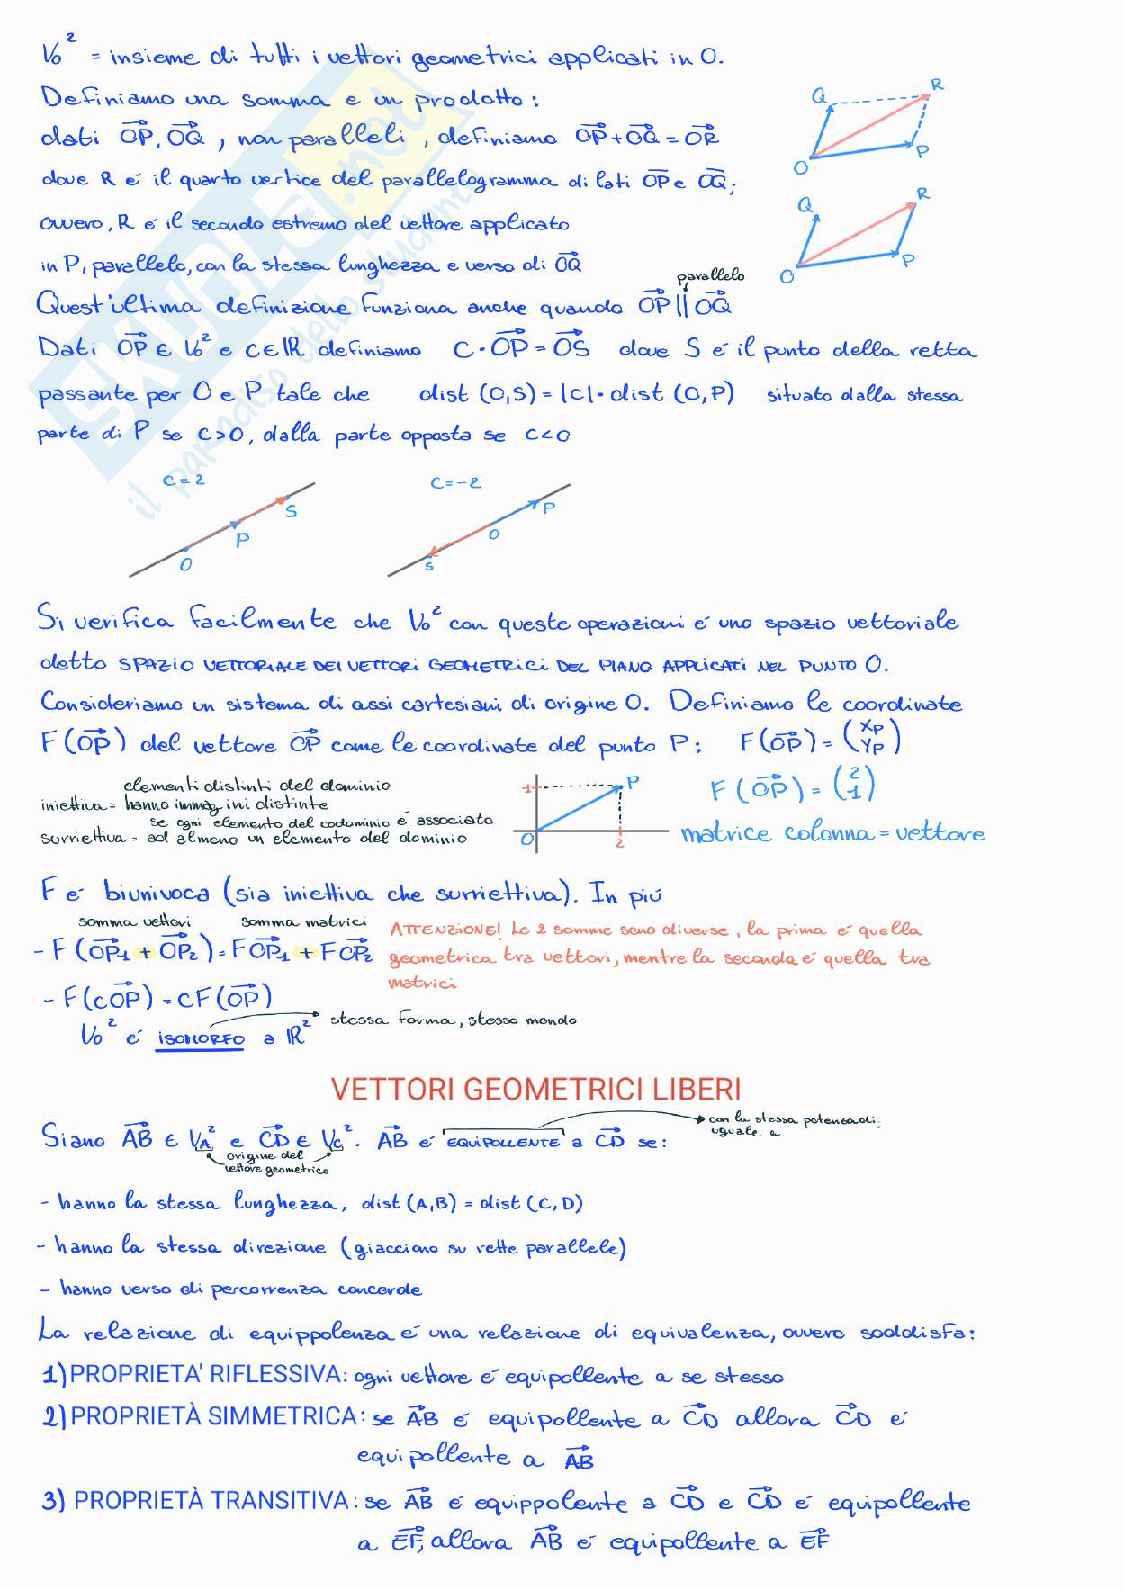 V₀² = insieme di tutti i vettori geometrici applicati in O.
Definiamo una somma e un prodotto:
dati OP, OQ, non paralleli, definiamo OP+OQ=OR
dove R é il quarto vertice del parallelogramma di lati OP e OQ;
ovvero, R é il secondo estremo del vettore applicato
in P, parallelo, con la stessa lunghezza e verso di OQ
parallelo
Quest'ultima definizione funziona anche quando OP || OQ
Q R
O P
Q R
O P
Dati OP ∈ V₀² e c∈ℝ definiamo c·OP=OS dove S é il punto della retta
passante per O e P tale che dist (O,S)=|c|·dist (O,P) situato dalla stessa
parte di P se c>0, dalla parte opposta se c<0
C=2 C=-2
O P S
S O P
Si verifica facilmente che V₀² con queste operazioni é uno spazio vettoriale
detto SPAZIO VETTORIALE DEI VETTORI GEOMETRICI DEL PIANO APPLICATI NEL PUNTO O.
Consideriamo un sistema di assi cartesiani di origine O. Definiamo le coordinate
F(OP) del vettore OP come le coordinate del punto P: F(OP)=(Xp Yp)
elementi distinti del dominio
iniettiva = hanno immagini distinte
se ogni elemento del codominio é associato
suriettiva - ad almeno un elemento del dominio
1 P
O 2
F(OP)=(2 1)
matrice colonna = vettore
F é biunivoca (sia iniettiva che surriettiva). In piú
somma vettori somma matrici
- F(OP₁ + OP₂)=FOP₁ + FOP₂
ATTENZIONE! Le 2 somme sono diverse, la prima é quella
geometrica tra vettori, mentre la seconda é quella tra
matrici
- F(cOP)=cF(OP)
stessa forma, stesso mondo
V₀² é ISOMORFO a ℝ²
VETTORI GEOMETRICI LIBERI
con la stessa potenza di:
uguale a
Siano AB ∈ V_A² e CD ∈ V_C². AB é EQUIPOLLENTE a CD se:
origine del
vettore geometrico
- hanno la stessa lunghezza, dist (A,B) = dist (C,D)
- hanno la stessa direzione (giacciono su rette parallele)
- hanno verso di percorrenza concorde
La relazione di equippolenza é una relazione di equivalenza, ovvero soddisfa:
1) PROPRIETA' RIFLESSIVA: ogni vettore é equipollente a se stesso
2) PROPRIETÀ SIMMETRICA: se AB é equipollente a CD allora CD é
equipollente a AB
3) PROPRIETÀ TRANSITIVA: se AB é equippolente a CD e CD é equipollente
a EF, allora AB é equipollente a EF
SKUOLA.net
il paradiso dello studente